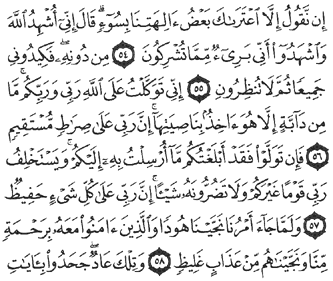 إِن نَّقُولُ إِلَّا ٱعْتَرَىٰكَ بَعْضُ ءَالِهَتِنَا بِسُوٓءٍ قَالَ إِنِّىٓ أُشْهِدُ ٱللَّهَ
وَٱشْهَدُوٓا۟ أَنِّى بَرِىٓءٌ مِّمَّا تُشْرِكُونَ ٥٤ مِن دُونِهِۦ فَكِيدُونِى
جَمِيعًا ثُمَّ لَا تُنظِرُونِ ٥٥ إِنِّى تَوَكَّلْتُ عَلَى ٱللَّهِ رَبِّى وَرَبِّكُم مَّا
مِن دَآبَّةٍ إِلَّا هُوَ ءَاخِذٌۢ بِنَاصِيَتِهَآ إِنَّ رَبِّى عَلَىٰ صِرَٰطٍ مُّسْتَقِيمٍ
٥٦ فَإِن تَوَلَّوْا۟ فَقَدْ أَبْلَغْتُكُم مَّآ أُرْسِلْتُ بِهِۦٓ إِلَيْكُمْ وَيَسْتَخْلِفُ
رَبِّى قَوْمًا غَيْرَكُمْ وَلَا تَضُرُّونَهُۥ شَيْـًٔا إِنَّ رَبِّى عَلَىٰ كُلِّ شَىْءٍ حَفِيظٌ
٥٧ وَلَمَّا جَآءَ أَمْرُنَا نَجَّيْنَا هُودًا وَٱلَّذِينَ ءَامَنُوا۟ مَعَهُۥ بِرَحْمَةٍ
مِّنَّا وَنَجَّيْنَٰهُم مِّنْ عَذَابٍ غَلِيظٍ ٥٨ وَتِلْكَ عَادٌ جَحَدُوا۟ بِـَٔايَٰتِ